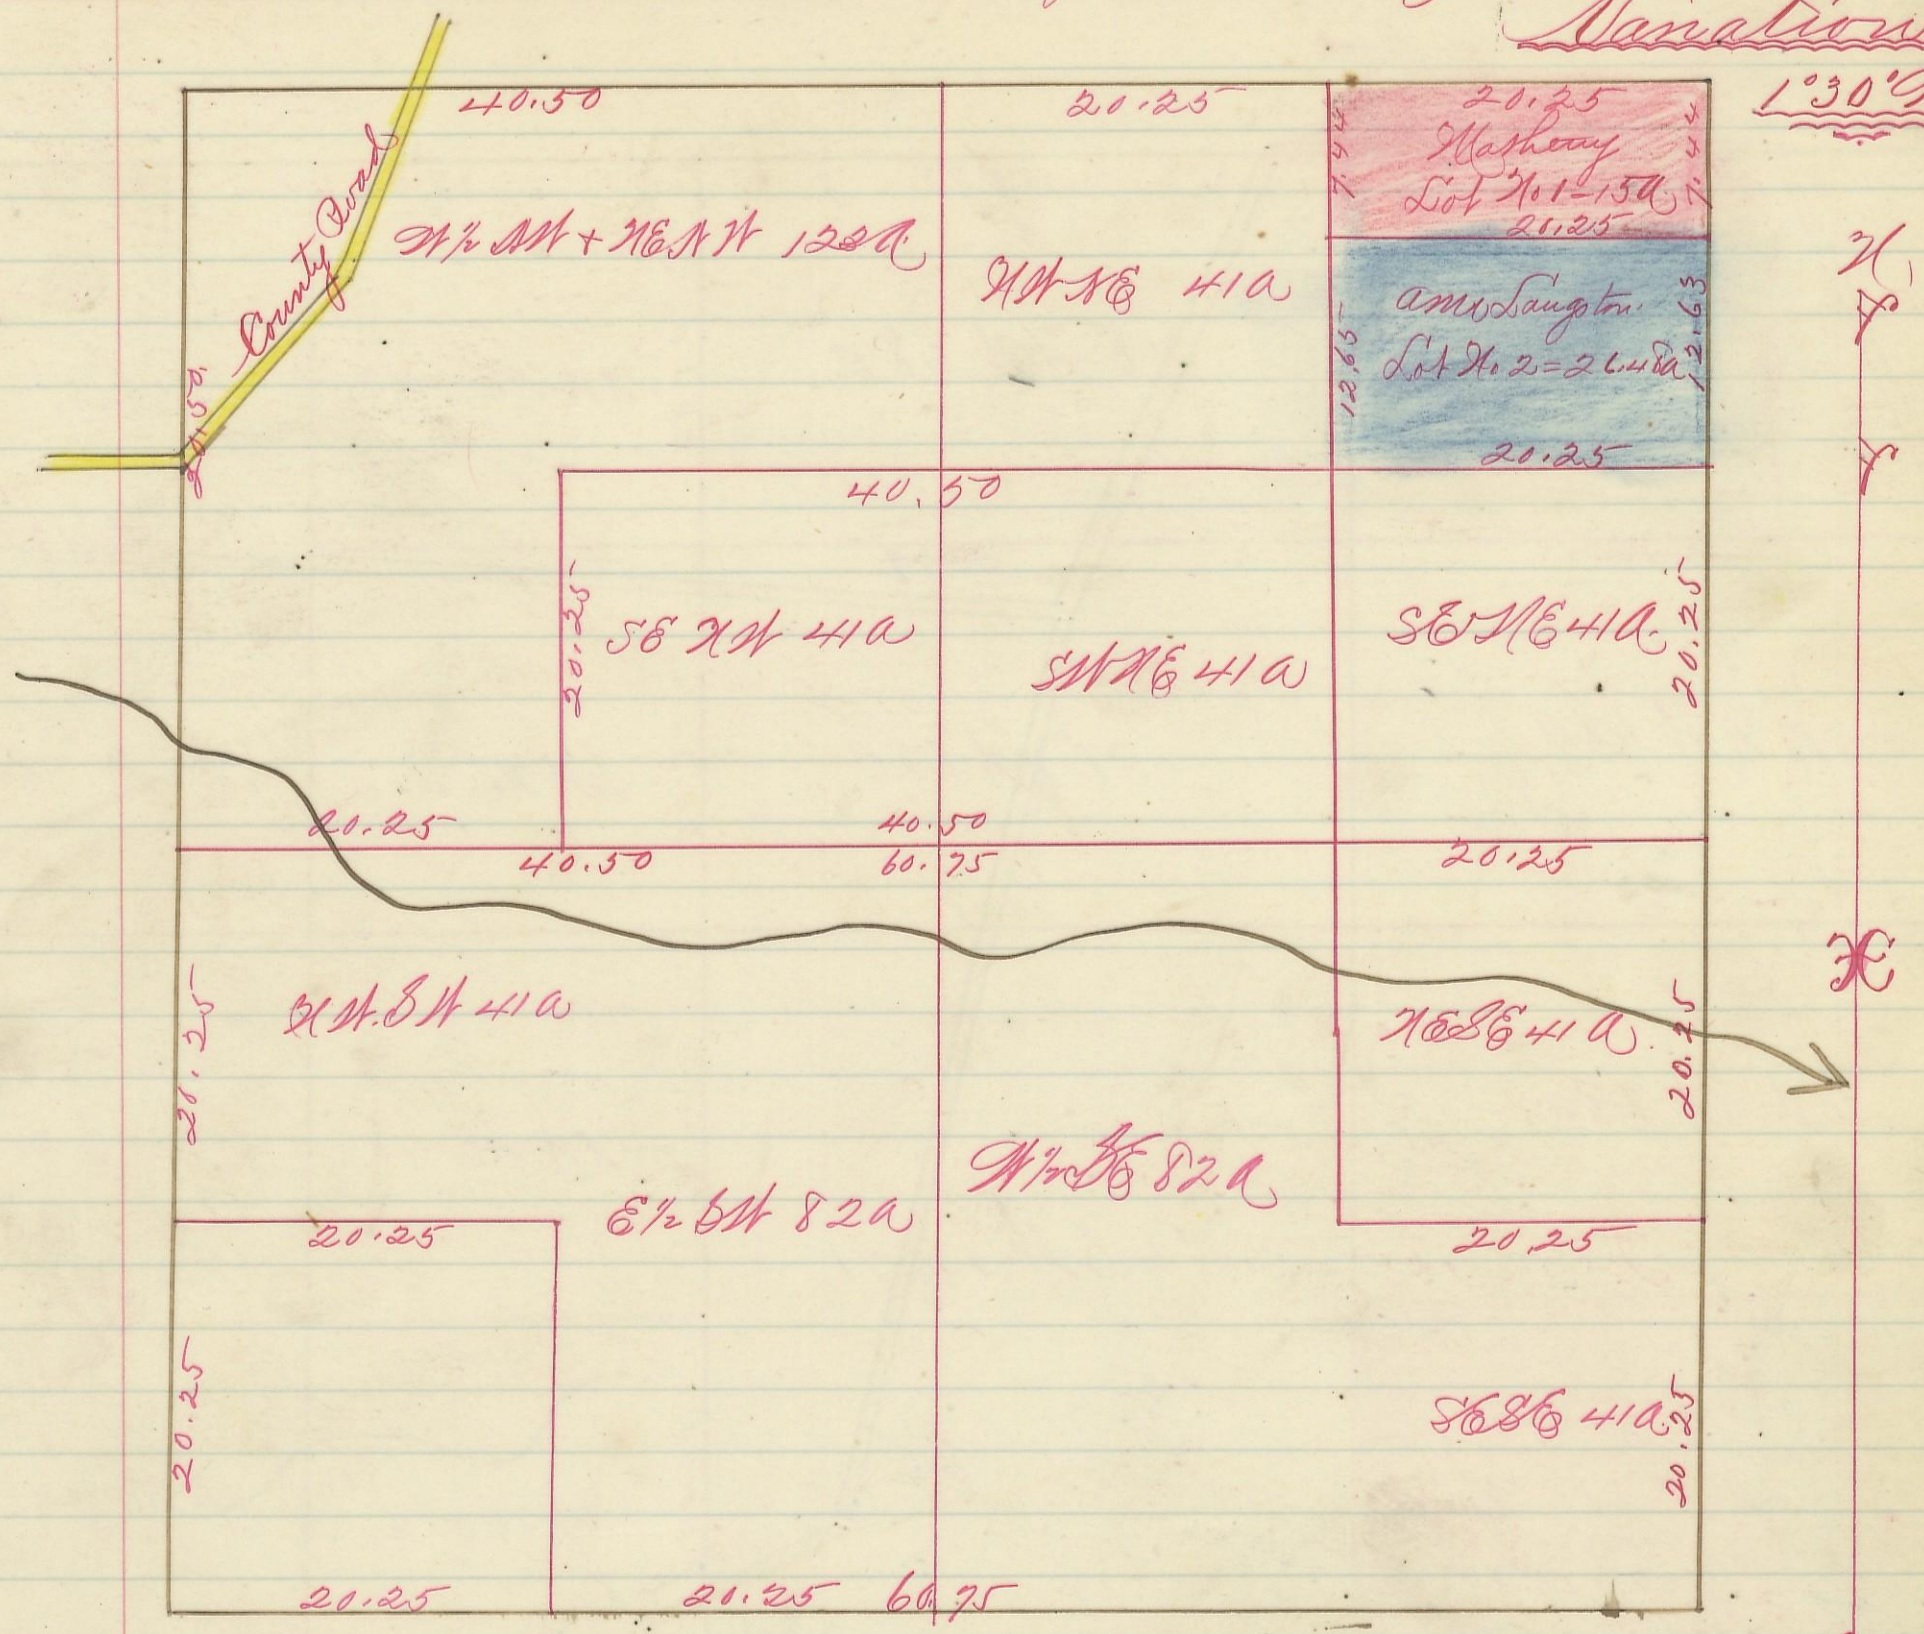 Variation
1°30'
40.50
20.25
20.25
7.44
Lot No. 1 - 15a
7.44
20.25
County Road
W½ NW + NE NW 122 a.
NW NE 41 a
12.65
Langston.
Lot No. 2 = 26.48a
12.63
20.25
N
40.50
40.50
20.25
SE NW 41 a
SW NE 41 a
SE NE 41 a.
20.25
20.25
40.50
40.50
60.75
20.25
20.25
NW. SW 41 a
NE SE 41 a.
20.25
E½ SW 82 a
W½ SE 82 a
20.25
20.25
20.25
SE SE 41 a.
20.25
20.25
20.25
60.75